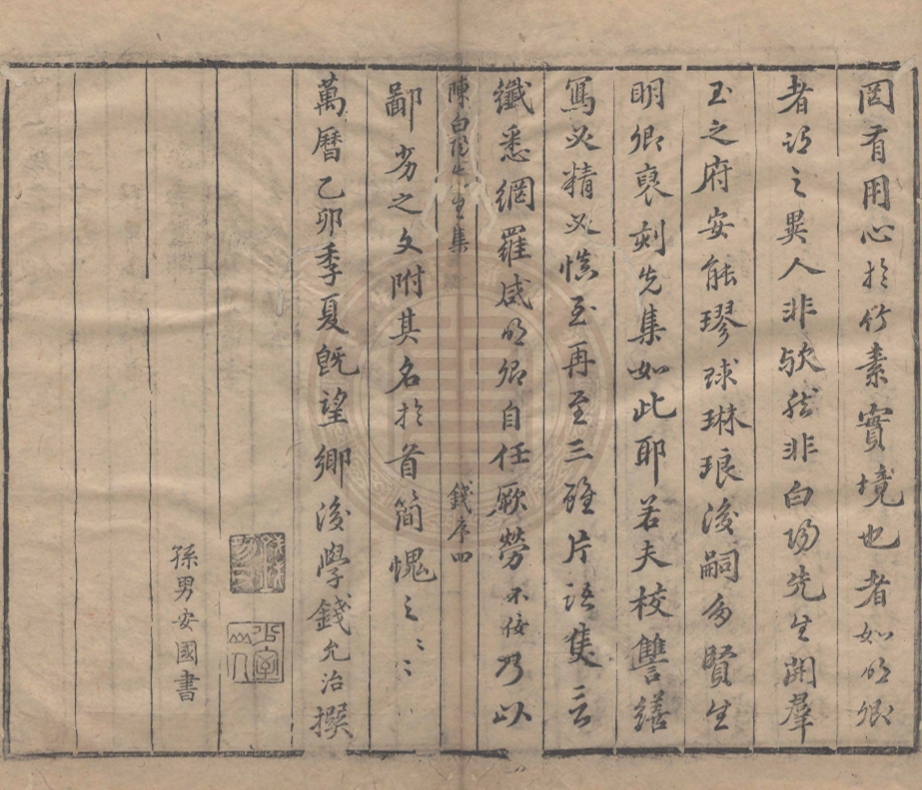 罔有用心於竹素實境也者如明卿
者謂之異人非歟然非白陽先生開羣
玉之府安能璆球琳琅後嗣多賢生
明卿裒刻先集如此耶若夫校讐繕
寫必精必慎至再至三雖片語隻言
纖悉網羅咸明卿自任厥勞不佞乃以
陳白陽先生集 錢序四
鄙劣之文附其名於首簡愧之〻〻
萬曆乙卯季夏旣望鄉後學錢允治撰
孫男安國書